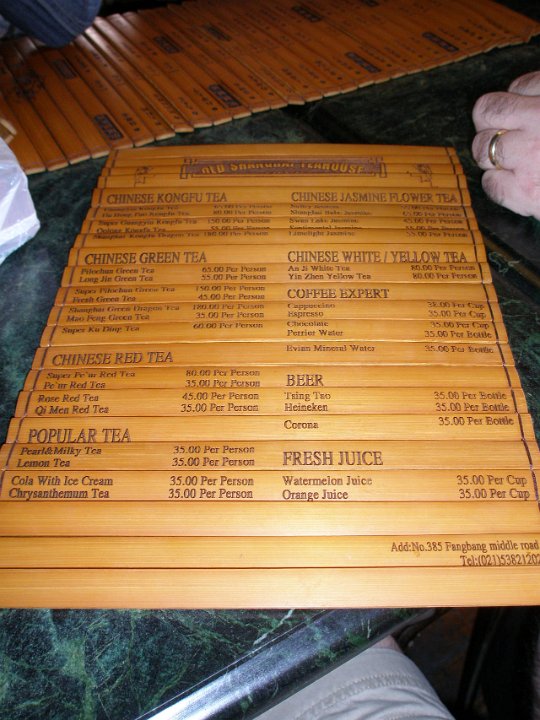 OLD SHANGHAI TEAHOUSE
CHINESE KONGFU TEA
Da Hong Pao Kongfu Tea 80.00 Per Person
Super Guangyin Kongfu Tea 150.00 Per Person
Oolong Kongfu Tea 55.00 Per Person
Shanghai Kongfu Dragon Tea 180.00 Per Person
CHINESE JASMINE FLOWER TEA
Shanghai Baby Jasmine 65.00 Per Person
Swan Lake Jasmine 55.00 Per Person
Sentimental Jasmine 55.00 Per Person
Limelight Jasmine 55.00 Per Person
CHINESE GREEN TEA
Pilochun Green Tea 65.00 Per Person
Long Jin Green Tea 55.00 Per Person
Super Pilochun Green Tea 150.00 Per Person
Fresh Green Tea 45.00 Per Person
Shanghai Green Dragon Tea 180.00 Per Person
Mao Feng Green Tea 35.00 Per Person
Super Ku Ding Tea 60.00 Per Person
CHINESE WHITE / YELLOW TEA
An Ji White Tea 80.00 Per Person
Yin Zhen Yellow Tea 80.00 Per Person
COFFEE EXPERT
Cappuccino 38.00 Per Cup
Espresso 35.00 Per Cup
Chocolate 35.00 Per Cup
Perrier Water 35.00 Per Bottle
Evian Mineral Water 35.00 Per Bottle
CHINESE RED TEA
Super Pe'ur Red Tea 80.00 Per Person
Pe'ur Red Tea 35.00 Per Person
Rose Red Tea 45.00 Per Person
Qi Men Red Tea 35.00 Per Person
BEER
Tsing Tao 35.00 Per Bottle
Heineken 35.00 Per Bottle
Corona 35.00 Per Bottle
POPULAR TEA
Pearl&Milky Tea 35.00 Per Person
Lemon Tea 35.00 Per Person
Cola With Ice Cream 35.00 Per Person
Chrysanthemum Tea 35.00 Per Person
FRESH JUICE
Watermelon Juice 35.00 Per Cup
Orange Juice 35.00 Per Cup
Add:No.385 Fangbang middle road
Tel:(021)53821202